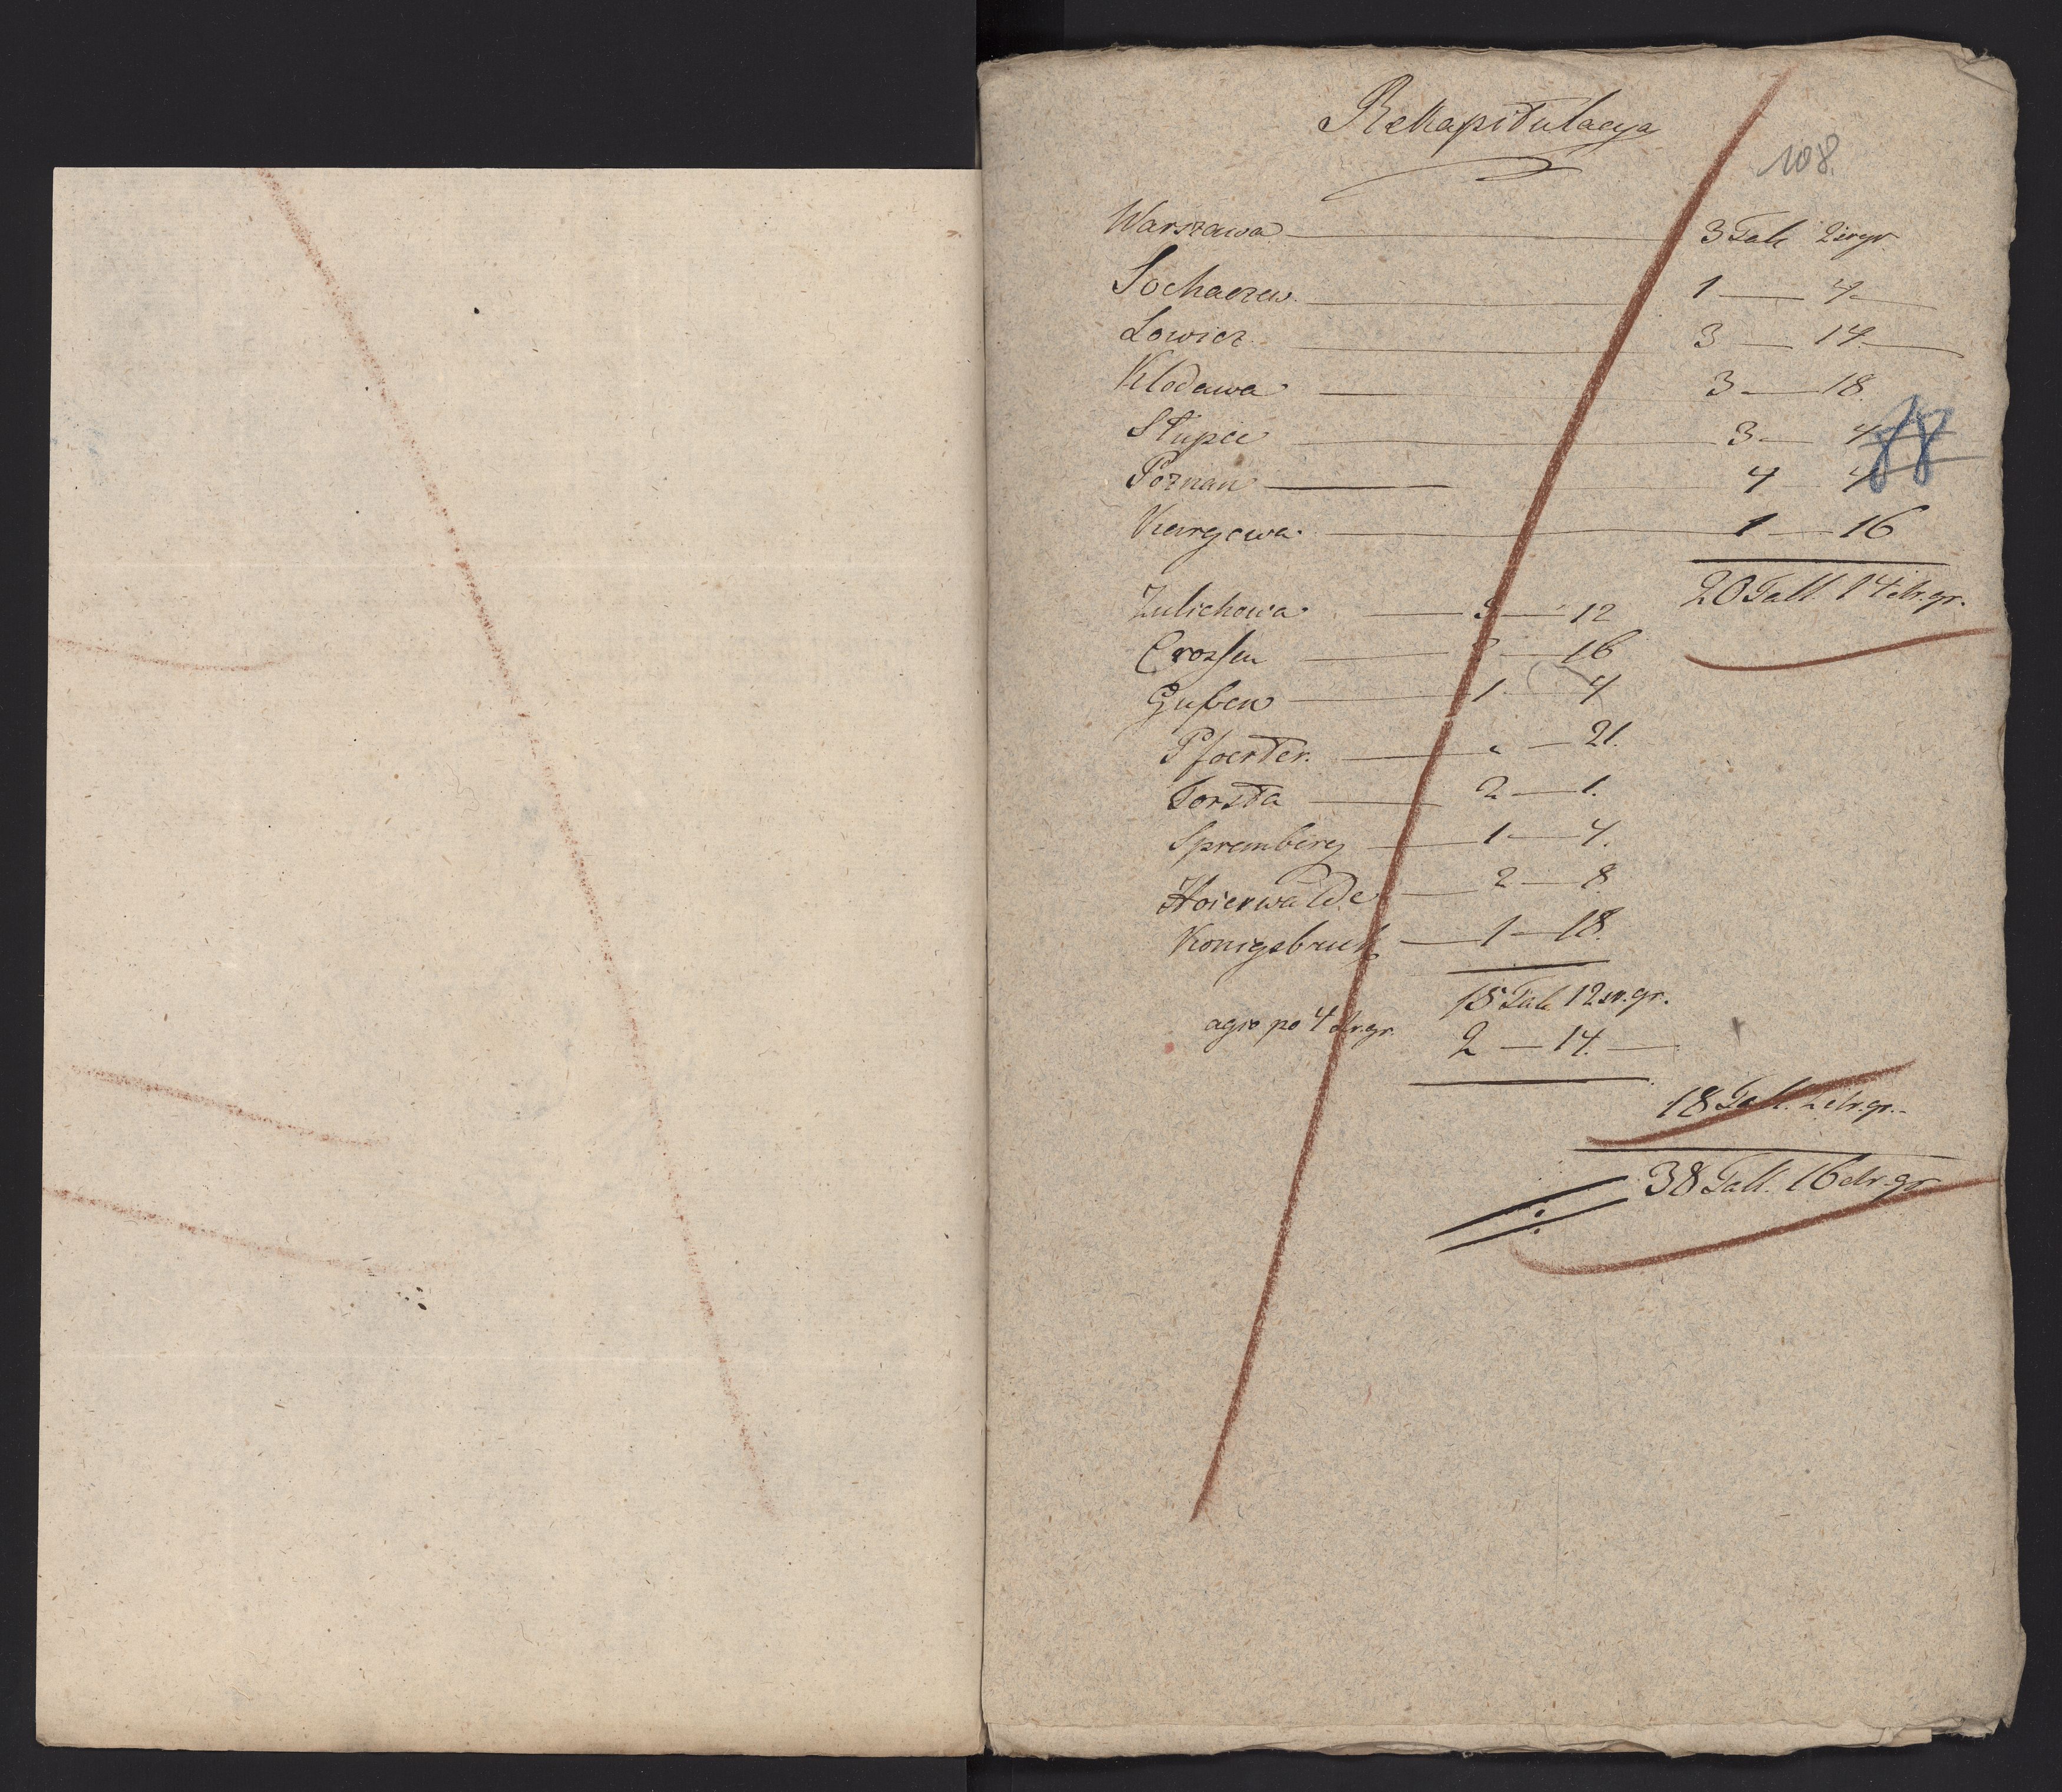 Rekapitulacya
108.
Warszawa 3 Tal. 2 sr.gr.
Sochaczew. 1 — 4 —
Lowicz 3 — 14 —
Klodawa 3 — 18.
Stupce 3 — 4
88
Poznan 4 4
Kargowa 1 — 16
20 Tall. 14 sbr.gr.
Zulichowa — 12
Crossen — 16
Guben 1 4
Pfoerter. " — 21.
Forsta 2 — 1.
Spremberg 1 — 4.
Hoierwalde 2 — 8.
Konigsbruk 1 — 18.
15 Tal. 12 sr.gr.
agio po 4 sbr.gr. 2 — 14. —
18 Tall. 2 sbr.gr.
38 Tall. 16 sbr.gr